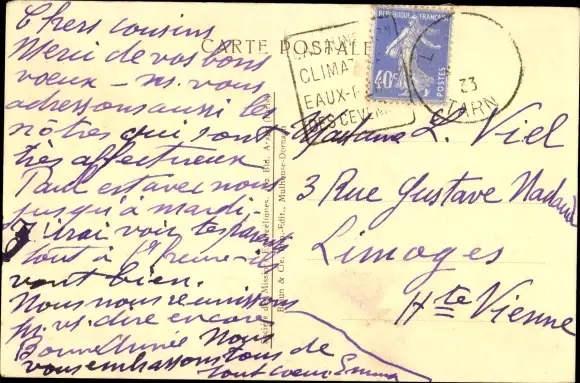 Chers cousins
Merci de vos bons
voeux - ns. vous
adressons aussi les
nôtres qui sont
très affectueux
Paul est avec nous
jusqu'à mardi.
J'irai voir tes parents
tout à l'heure - ils
vont bien.
Nous nous réunissons
pr. vs. dire encore
Bonne Année Nous
vous embrassons tous de
tout coeur. Emma
CARTE POSTALE
CLIMAT
EAUX-
DES CEVEN
REPUBLIQUE FRANÇAISE
40c
POSTES
33
TARN
Braun & Cie, Edit., Mulhouse-Dornach
Madame L. Viel
3 Rue Gustave Nadaud
Limoges
Hte Vienne